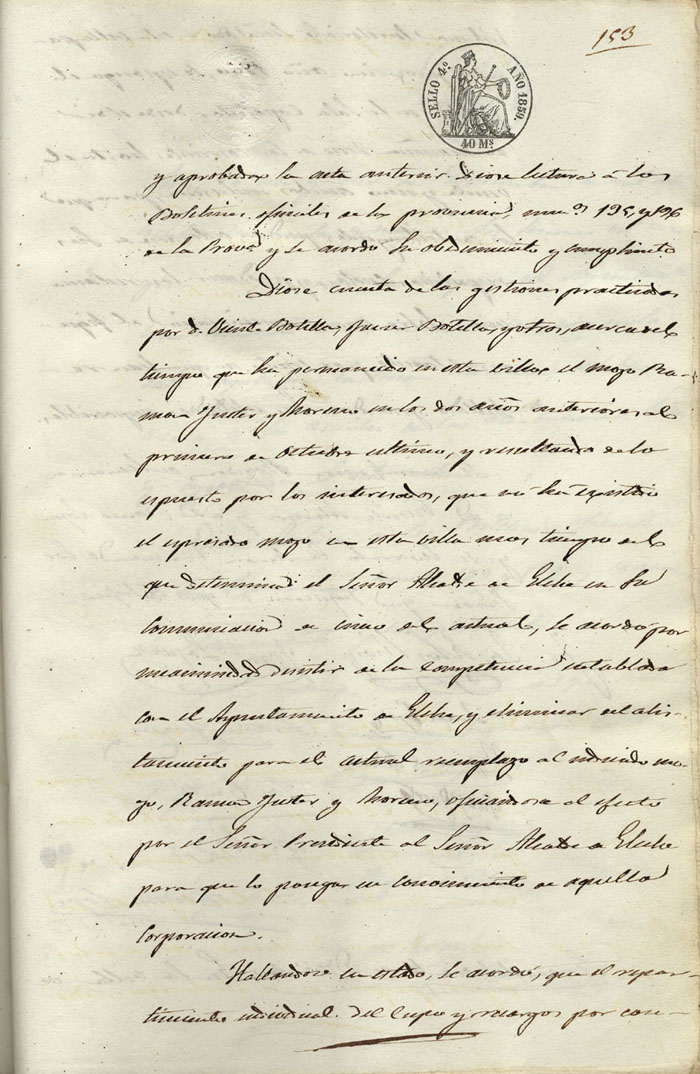 153
SELLO 4º AÑO 1859.
40 Ms
y aprobada la acta anterior. Diose lectura á los
Boletines oficiales de la provincia, num.s 195, y 196
de la Prova y se acordo su obedecimiento y cumplimto
Diose cuenta de las gestiones practicadas
por D. Vicente Botella, José Botella, y otros, acerca del
tiempo que ha permanecido en esta villa el mozo Ra-
mon Juster y Moreno en los dos años anteriores al
primero de Octubre ultimo, y resultando de lo
espuesto por los interesados, que no ha existido
el espresado mozo en esta villa mas tiempo del
que determina el Señor Alcalde de Elche en su
comunicacion de cinco del actual, se acordó por
unanimidad desistir de la competencia entablada
con el Ayuntamiento de Elche, y eliminar del alis-
tamiento para el actual reemplazo al indicado mo-
zo, Ramon Juster y Moreno, oficiandose al efecto
por el Señor Presidente al Señor Alcalde de Elche
para que lo ponga en conocimiento de aquella
corporacion.
Hallandose en estado, se acordó, que el repar-
timiento individual del cupo y recargos por con-